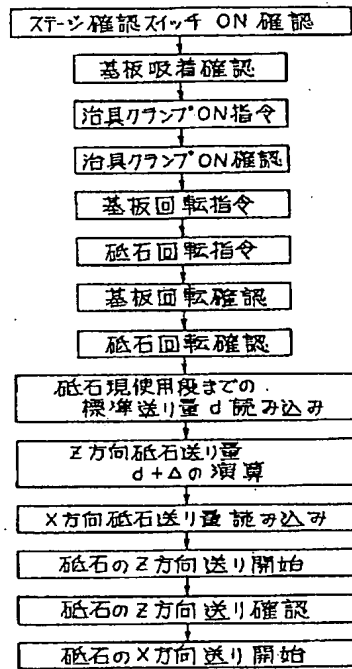 ステージ確認スイッチ ON 確認
基板吸着確認
治具クランプON指令
治具クランプON確認
基板回転指令
砥石回転指令
基板回転確認
砥石回転確認
砥石現使用段までの
標準送り量 d 読み込み
Z方向砥石送り量
d+Δの演算
X方向砥石送り量読み込み
砥石のZ方向送り開始
砥石のZ方向送り確認
砥石のX方向送り開始